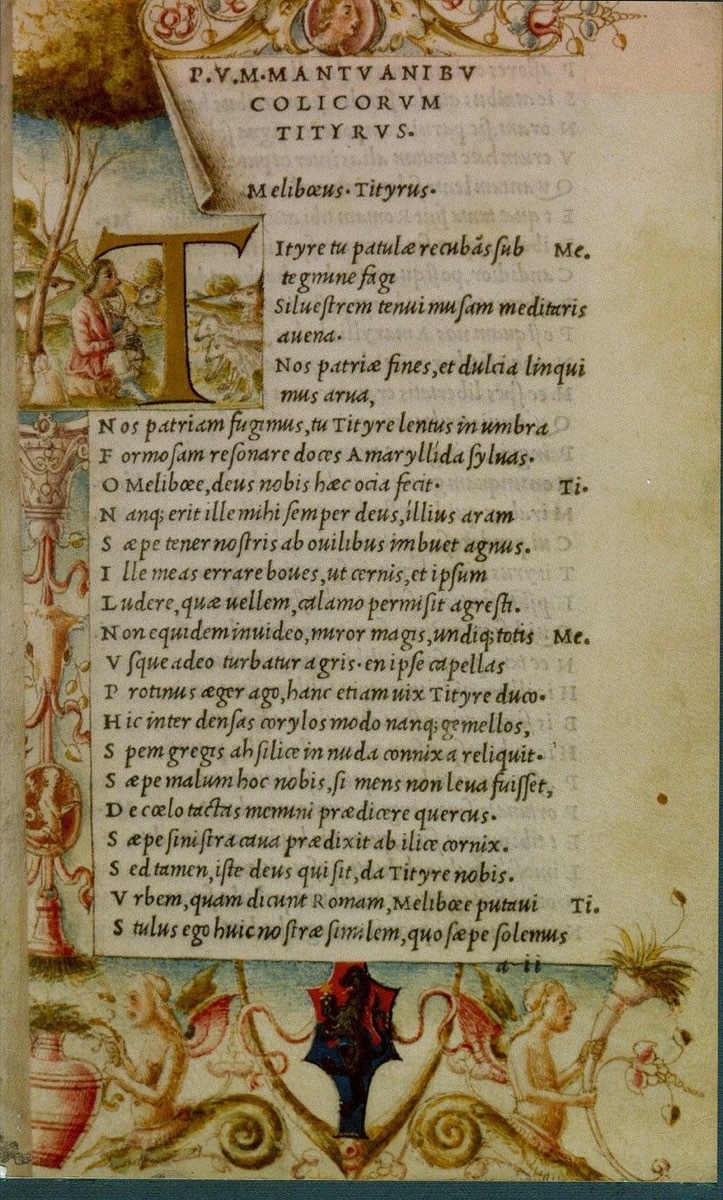 P.V.M.MANTVANI BV
COLICORVM
TITYRVS.
Melibœus. Tityrus.
TItyre tu patulæ recubãs sub Me.
tegmine fagi
Siluestrem tenui musam meditaris
auena.
Nos patriæ fines, et dulcia linqui
mus arua,
Nos patriam fugimus, tu Tityre lentus in umbra
Formosam resonare doces Amaryllida syluas.
O Melibœe, deus nobis hæc ocia fecit. Ti.
Nanq; erit ille mihi semper deus, illius aram
Sæpe tener nostris ab ouilibus imbuet agnus.
Ille meas errare boues, ut cernis, et ipsum
Ludere, quæ uellem, calamo permisit agresti.
Non equidem inuideo, miror magis, undiq; totis Me.
Vsque adeo turbatur agris. en ipse capellas
Protinus æger ago, hanc etiam uix Tityre duco.
Hic inter densas corylos modo nanq; gemellos,
Spem gregis ah silice in nuda connixa reliquit.
Sæpe malum hoc nobis, si mens non leua fuisset,
De cœlo tactas memini prædicere quercus.
Sæpe sinistra caua prædixit ab ilice cornix.
Sed tamen, iste deus qui sit, da Tityre nobis.
Vrbem, quam dicunt Romam, Melibœe putaui Ti.
Stulus ego huic nostræ similem, quo sæpe solemus
a ii